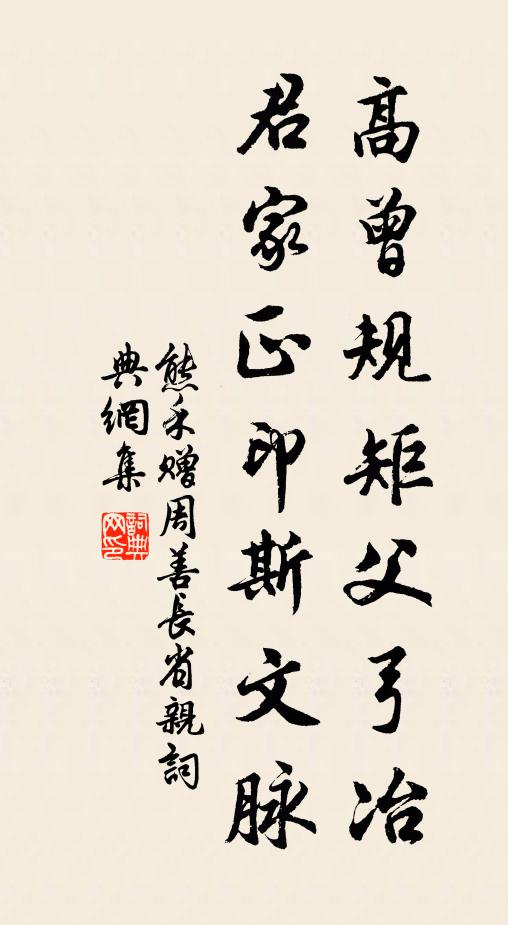 高曾規矩父弓冶
君家正印斯文脉
熊禾贈周善長省親詞
典網集
詞典網印